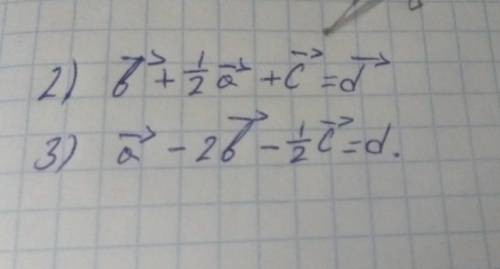 2) b⃗ + 1/2 a⃗ + c⃗ = d⃗
3) a⃗ - 2b⃗ - 1/2 c⃗ = d.